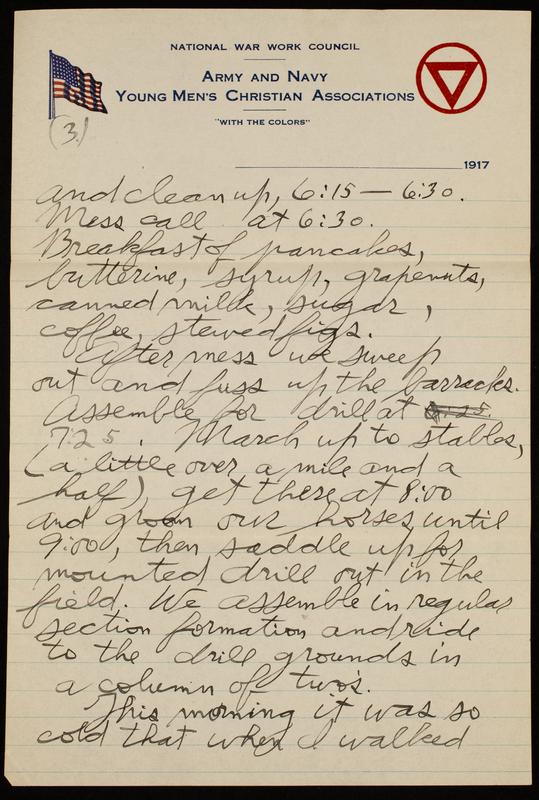 NATIONAL WAR WORK COUNCIL
ARMY AND NAVY
YOUNG MEN'S CHRISTIAN ASSOCIATIONS
"WITH THE COLORS"
(3.)
1917
and clean up, 6:15 — 6:30.
Mess call at 6:30.
Breakfast of pancakes,
butterine, syrup, grapenuts,
canned milk, sugar,
coffee, stewed figs.
After mess we sweep
out and fuss up the barracks.
Assemble for drill at
7:25. March up to stables,
(a little over a mile and a
half), get there at 8:00
and groom our horses until
9:00, then saddle up for
mounted drill out in the
field. We assemble in regular
section formation and ride
to the drill grounds in
a column of two's.
This morning it was so
cold that when I walked